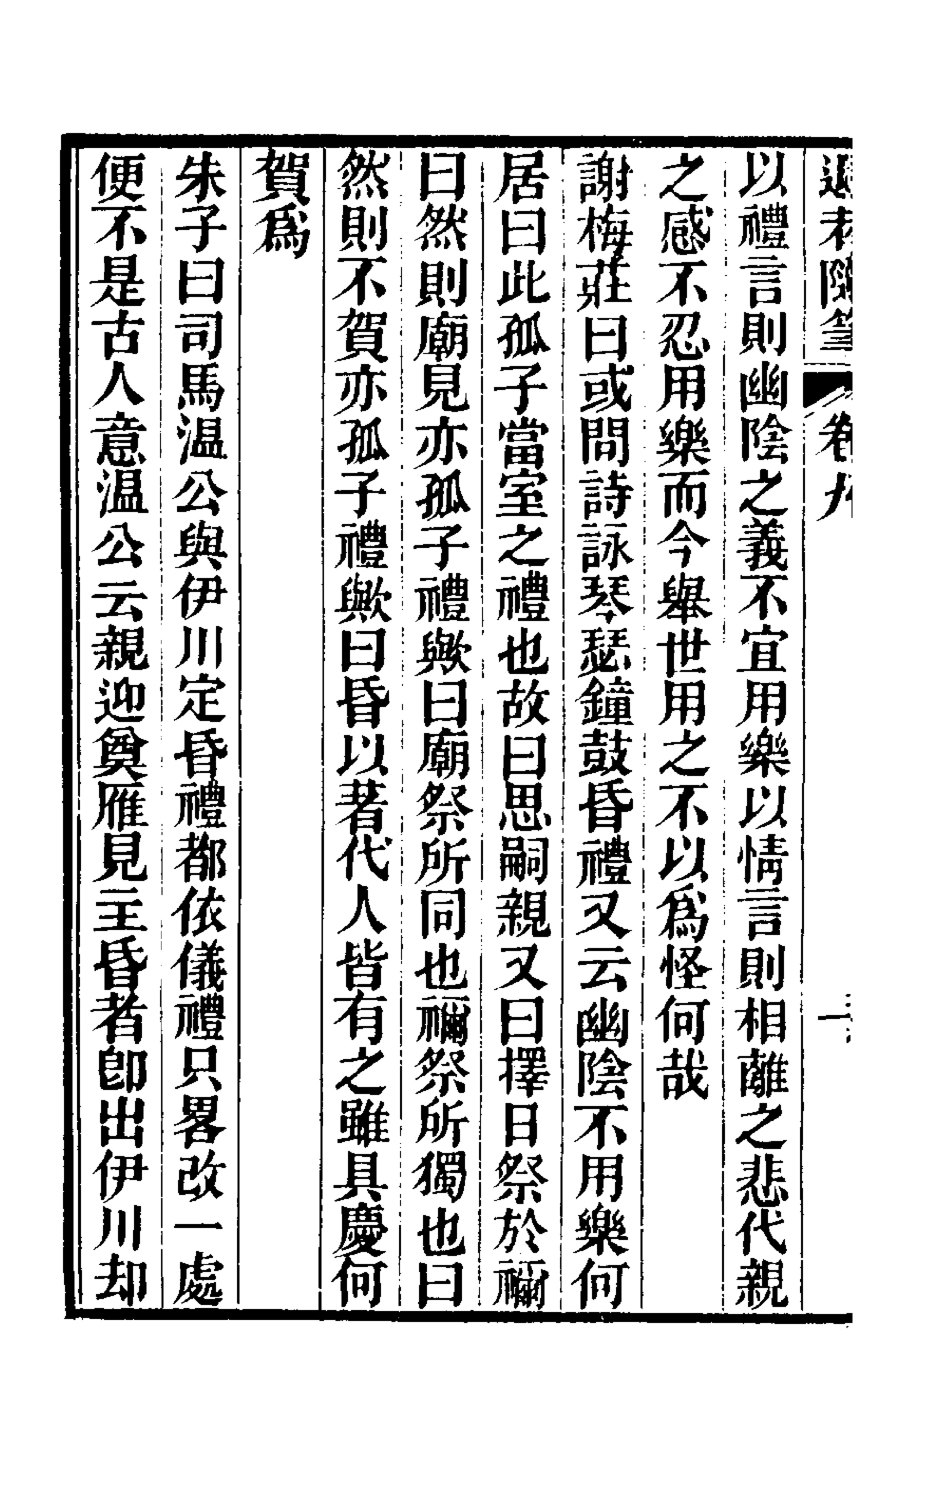 退老隨筆 卷九
以禮言則幽陰之義不宜用樂以情言則相離之悲代親
之感不忍用樂而今舉世用之不以爲怪何哉
謝梅莊曰或問詩詠琴瑟鐘鼓昏禮又云幽陰不用樂何
居曰此孤子當室之禮也故曰思嗣親又曰擇日祭於禰
曰然則廟見亦孤子禮歟曰廟祭所同也禰祭所獨也曰
然則不賀亦孤子禮歟曰昏以著代人皆有之雖具慶何
賀爲
朱子曰司馬温公與伊川定昏禮都依儀禮只畧改一處
便不是古人意温公云親迎奠雁見主昏者卽出伊川却